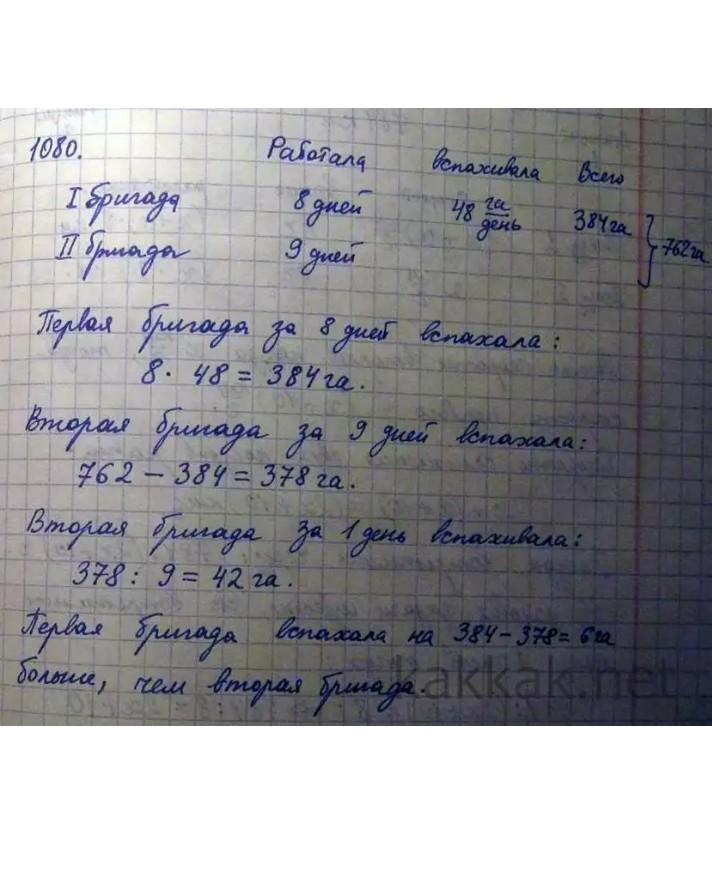 1080. Работала вспахивала Всего
I бригада 8 дней 48 га/день 384 га
II бригада 9 дней
762 га
Первая бригада за 8 дней вспахала:
8 · 48 = 384 га.
Вторая бригада за 9 дней вспахала:
762 – 384 = 378 га.
Вторая бригада за 1 день вспахивала:
378 : 9 = 42 га.
Первая бригада вспахала на 384 – 378 = 6 га
больше, чем вторая бригада.
kakkak.net